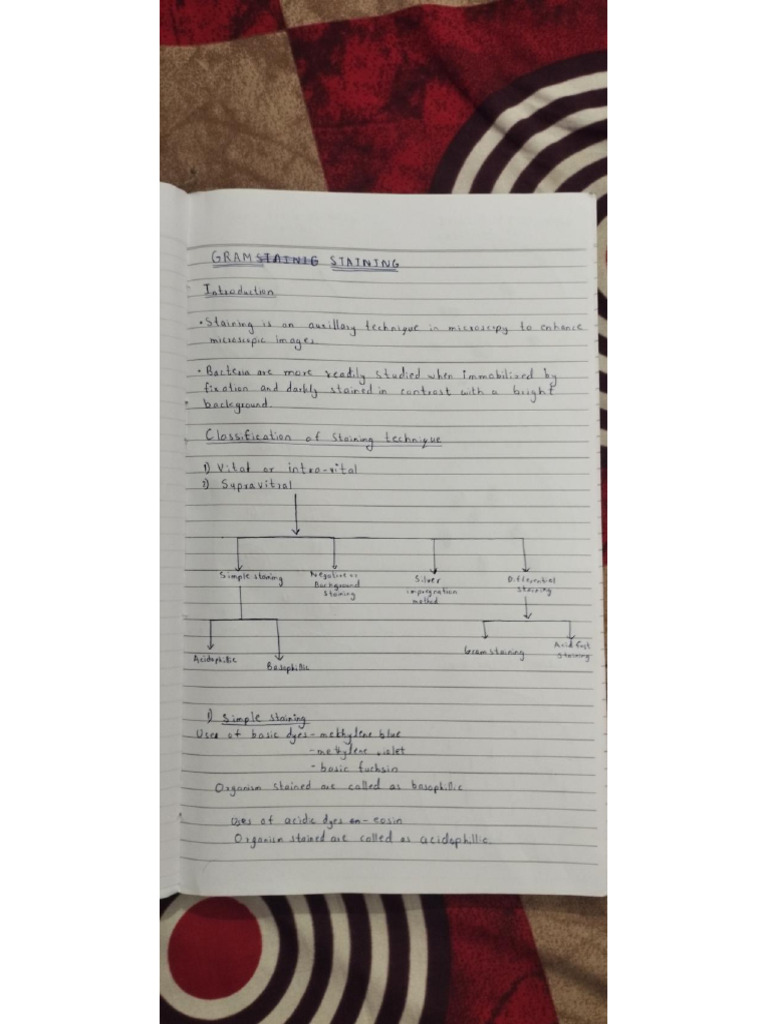 GRAM STAINIG STAINING
Introduction
• Staining is an auxillary technique in microscopy to enhance
microscopic images.
• Bacteria are more readily studied when immobilized by
fixation and darkly stained in contrast with a bright
background.
Classification of staining technique
1) Vital or intra-vital
2) Supravitral
Simple staining
Negative or
Background
Staining
Silver
impregnation
method
Differential
staining
Acidophillic
Basophillic
Gram staining
Acid fast
staining
1) Simple staining
Uses of basic dyes - methylene blue
- methylene violet
- basic fuchsin
Organism stained are called as basophillic
Uses of acidic dyes - eosin
Organism stained are called as acidophillic.